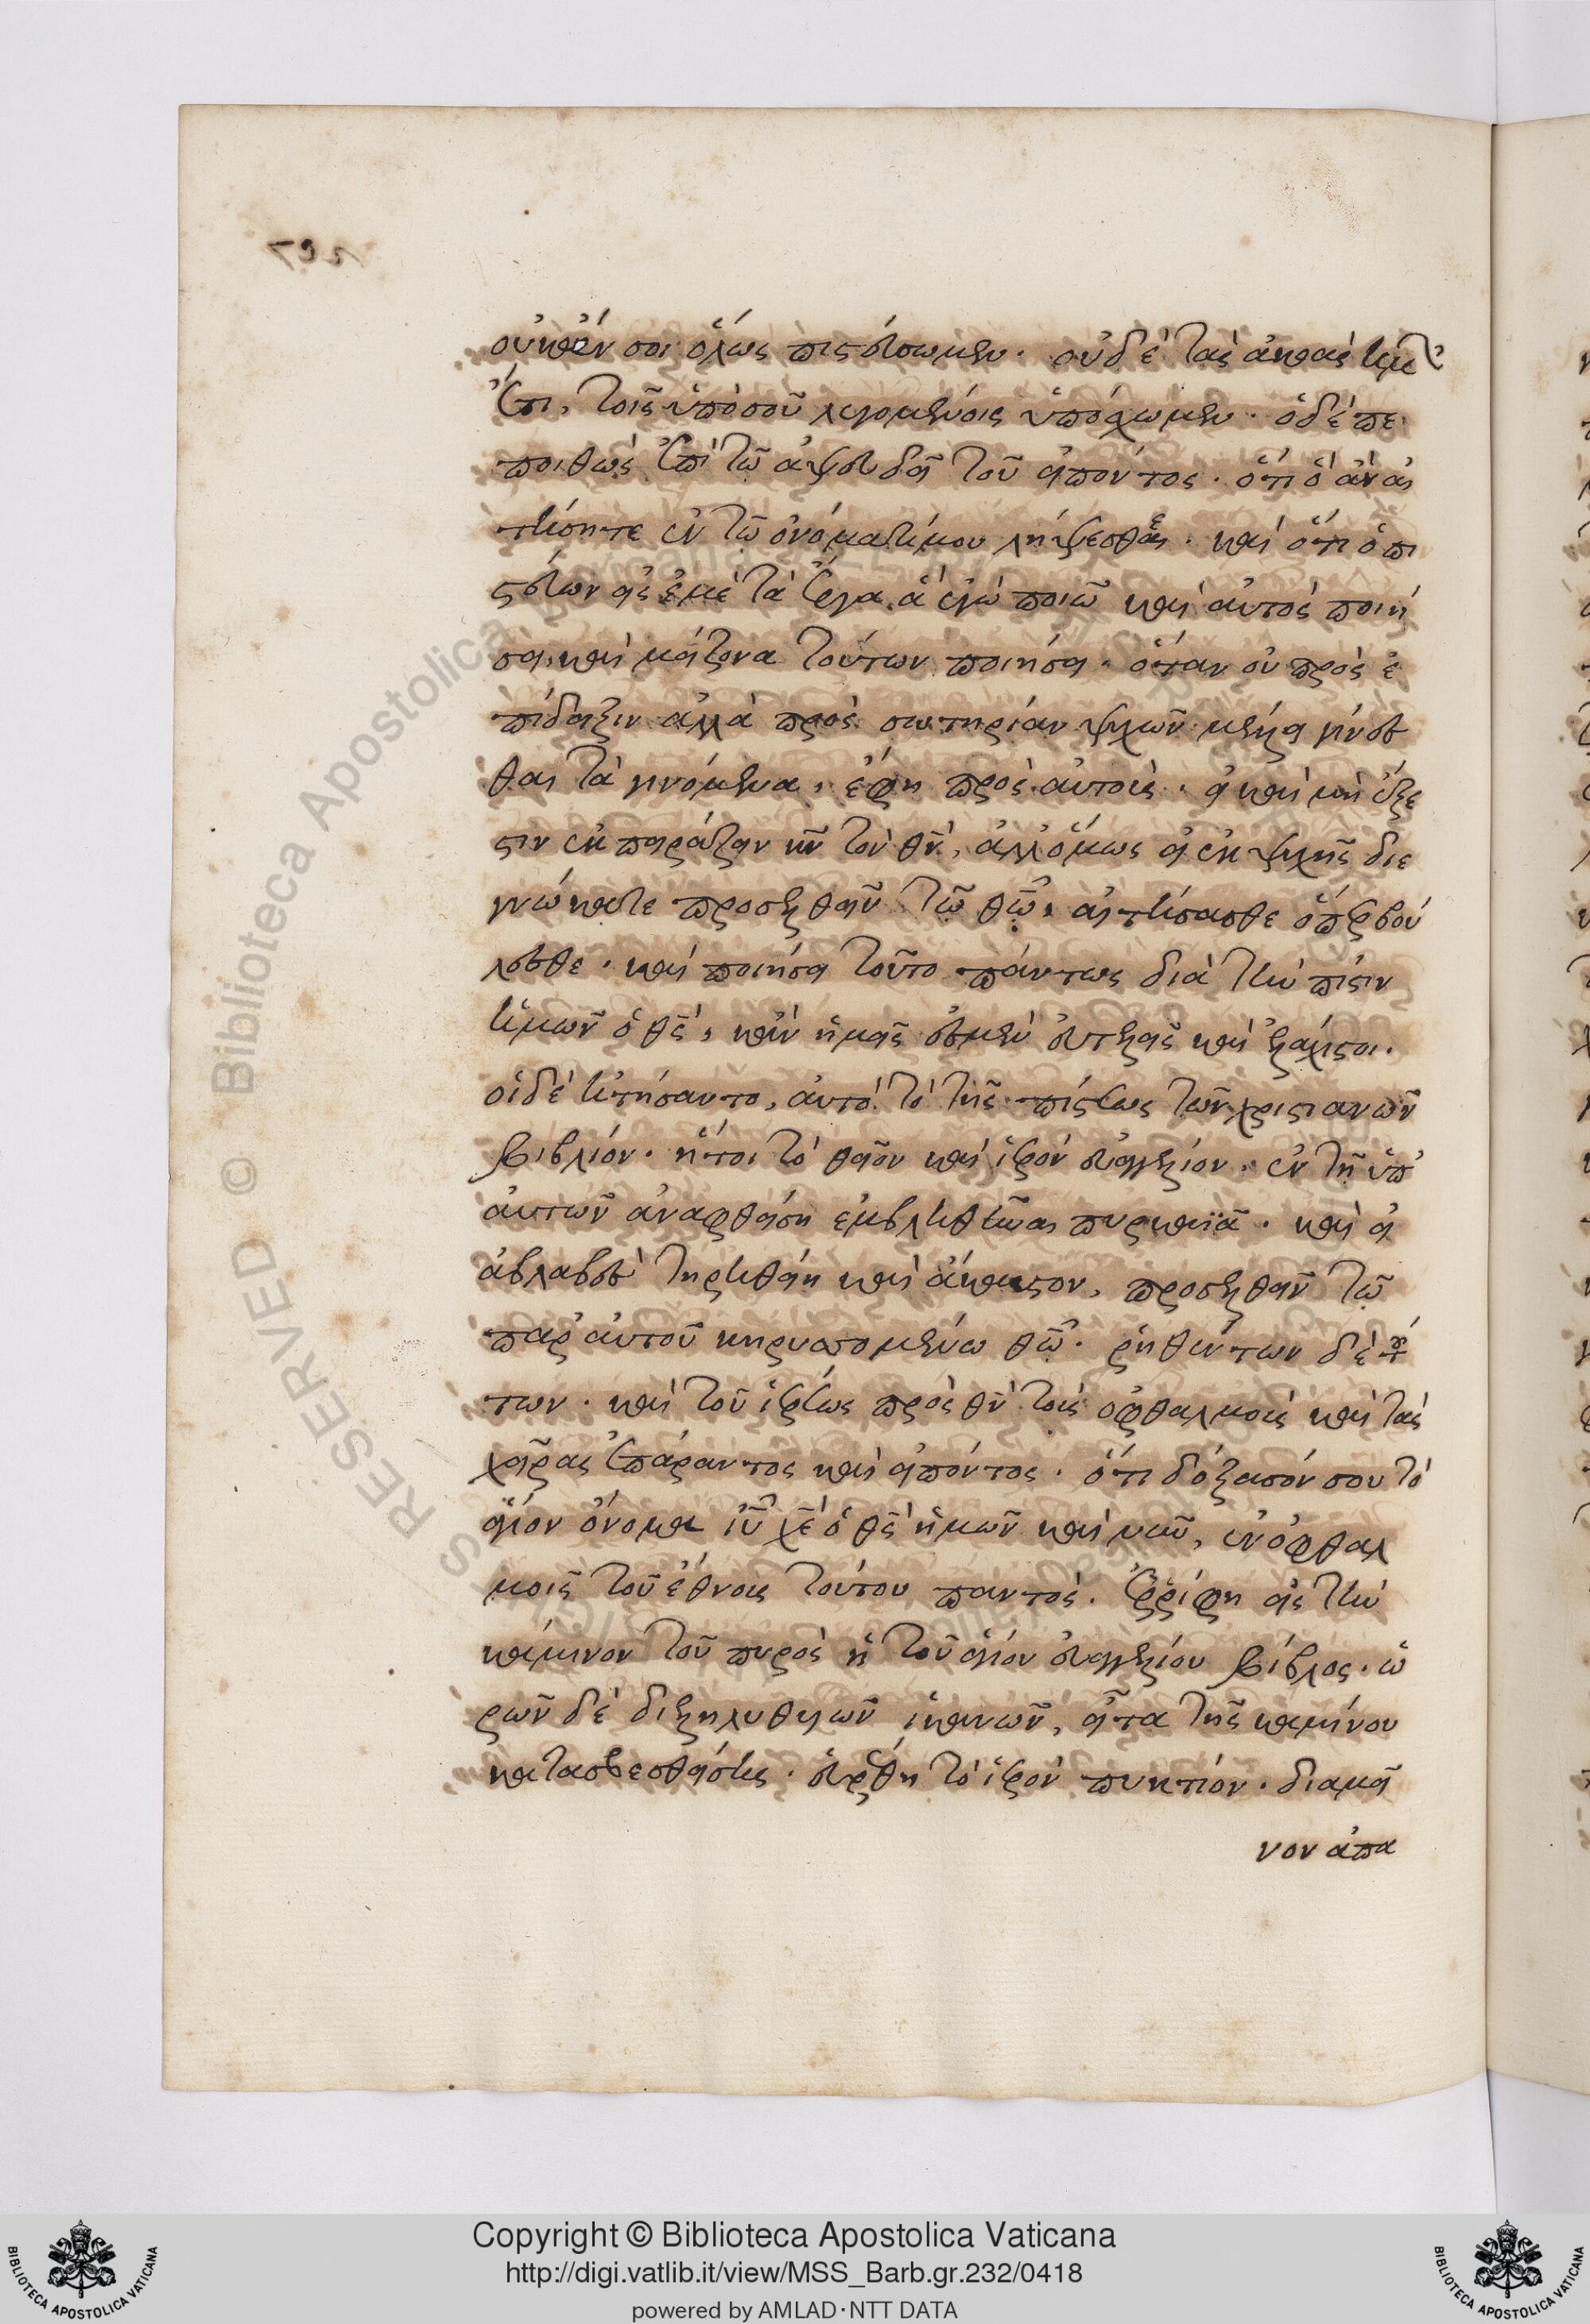 οὐκ ἄν σοι ὅλως πιστεύσωμεν. οὐδὲ τὰς ἀκοὰς ἡμῶν
ἔτι, τοῖς ὑπὸ σοῦ λεγομένοις ὑπόσχωμεν. ὁ δὲ πε
ποιθὼς ἐπὶ τῷ ἀψευδεῖ τοῦ εἰπόντος. ὅτι ὃ ἂν αἰ
τήσητε ἐν τῷ ὀνόματί μου λήψεσθε. καὶ ὅτι ὁ πι
στεύων εἰς ἐμὲ τὰ ἔργα ἃ ἐγὼ ποιῶ καὶ αὐτὸς ποιή
σει, καὶ μείζονα τούτων ποιήσει. ὅταν οὐ πρὸς ἐ
πίδειξιν ἀλλὰ πρὸς σωτηρίαν ψυχῶν μέλλει γίνεσ
θαι τὰ γινόμενα, ἔφη πρὸς αὐτούς. εἰ καὶ μὴ ἔξε
στιν ἐκπειράζειν κν τὸν θν, ἀλλ' ὅμως εἰ ἐκ ψυχῆς διε
γνώκατε προσελθεῖν τῷ θω, αἰτήσασθε ὅπερ βού
λεσθε. καὶ ποιήσει τοῦτο πάντως διὰ τὴν πίστιν
ἡμῶν ὁ θς, κἂν ἡμεῖς ἐσμὲν εὐτελεῖς καὶ ἐλάχιστοι.
οἱ δὲ ᾐτήσαντο, αὐτὸ τὸ τῆς πίστεως τῶν χριστιανῶν
βιβλίον. ἤτοι τὸ θεῖον καὶ ἱερὸν εὐαγγέλιον. ἐν τῇ ὑπ'
αὐτῶν ἀναφθείσῃ ἐμβληθῆναι πυρκαϊᾷ. καὶ εἰ
ἀβλαβὲς τηρηθείη καὶ ἄκαυστον, προσελθεῖν τῷ
παρ' αὐτοῦ κηρυσσομένῳ θῷ. ῥηθέντων δὲ τού
των. καὶ τοῦ ἱερέως πρὸς θν τοὺς ὀφθαλμοὺς καὶ τὰς
χεῖρας ἐπάραντος καὶ εἰπόντος. ὅτι δόξασόν σου τὸ
ἅγιον ὄνομα ιυ χε ὁ θς ἡμῶν καὶ νῦν, ἐν ὀφθαλ
μοῖς τοῦ ἔθνους τούτου παντός. ἐρρίφη εἰς τὴν
κάμινον τοῦ πυρὸς ἡ τοῦ ἁγίου εὐαγγελίου βίβλος. ὡ
ρῶν δὲ διεληλυθυιῶν ἱκανῶν, εἶτα τῆς καμίνου
κατασβεσθείσης. εὑρέθη τὸ ἱερὸν πυκτίον. διαμεῖ
νον ἀπα